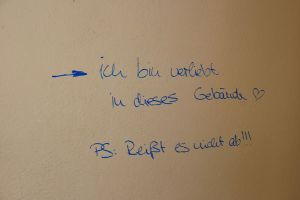 → ich bin verliebt
in dieses Gebäude ♡
PS: Reißt es nicht ab!!!